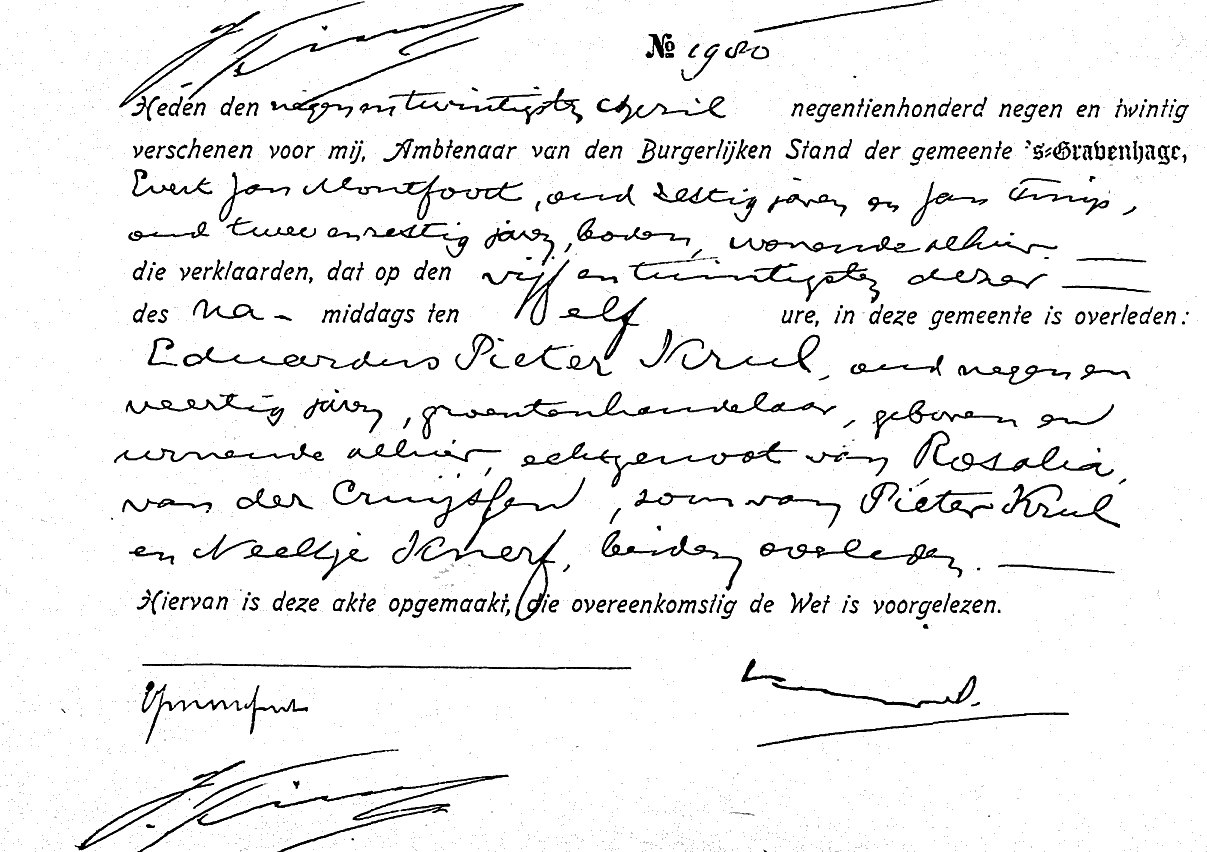 № 1980
Heden den negenentwintigsten April negentienhonderd negen en twintig
verschenen voor mij, Ambtenaar van den Burgerlijken Stand der gemeente 's-Gravenhage,
Evert Jan Montfoort, oud zestig jaren en Jan
oud twee en zestig jaren, boden, wonende alhier.
die verklaarden, dat op den vijf en twintigsten dezer
des na- middags ten elf ure, in deze gemeente is overleden:
Eduardus Pieter Krul, oud negen en
veertig jaren, groentenhandelaar, geboren en
wonende alhier, echtgenoot van Rosalia
van der Cruijssen, zoon van Pieter Krul
en Neeltje Knerf, beiden overleden.
Hiervan is deze akte opgemaakt, die overeenkomstig de Wet is voorgelezen.